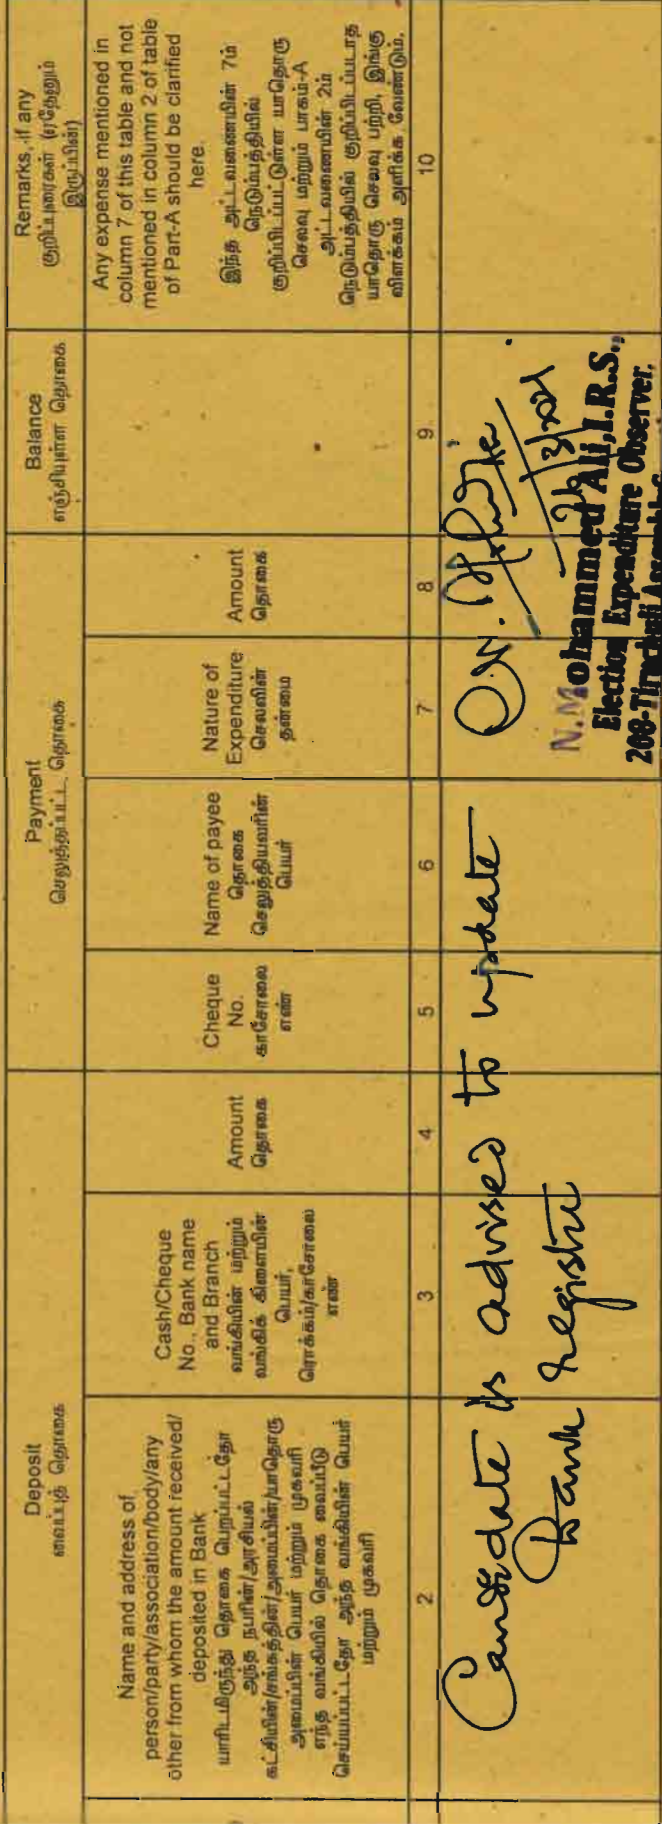 Deposit
வைப்புத் தொகை
Payment
செலுத்தப்பட்ட தொகை
Balance
எஞ்சியுள்ள தொகை
Remarks, if any
குறிப்புரைகள் (ஏதேனும்
இருப்பின்)
Name and address of
person/party/association/body/any
other from whom the amount received/
deposited in Bank
யாரிடமிருந்து தொகை பெறப்பட்டதோ
அந்த நபரின்/அரசியல்
கட்சியின்/சங்கத்தின்/அமைப்பின்/யாதொரு
அமைப்பின் பெயர் மற்றும் முகவரி
எந்த வங்கியில் தொகை வைப்பீடு
செய்யப்பட்டதோ அந்த வங்கியின் பெயர்
மற்றும் முகவரி
Cash/Cheque
No., Bank name
and Branch
வங்கியின் மற்றும்
வங்கிக் கிளையின்
பெயர்,
ரொக்கம்/காசோலை
எண்
Amount
தொகை
Cheque
No.
காசோலை
எண்
Name of payee
தொகை
செலுத்தியவரின்
பெயர்
Nature of
Expenditure
செலவின்
தன்மை
Amount
தொகை
Any expense mentioned in
column 7 of this table and not
mentioned in column 2 of table
of Part-A should be clarified
here.
இந்த அட்டவணையின் 7ம்
நெடும்பத்தியில்
குறிப்பிடப்பட்டுள்ள யாதொரு
செலவு மற்றும் பாகம்-A
அட்டவணையின் 2ம்
நெடும்பத்தியில் குறிப்பிடப்படாத
யாதொரு செலவு பற்றி, இங்கு
விளக்கம் அளிக்க வேண்டும்.
2 3 4 5 6 7 8 9. 10
Candidate is advised to update
Bank Register
N. Mohammed Ali, I.R.S.,
Election Expenditure Observer.
208-Tiruchuli